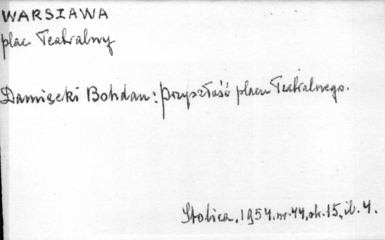 WARSZAWA
plac Teatralny
Damięcki Bohdan: Przyszłość placu Teatralnego.
Stolica, 1954. nr. 44, str. 15, il. 4.